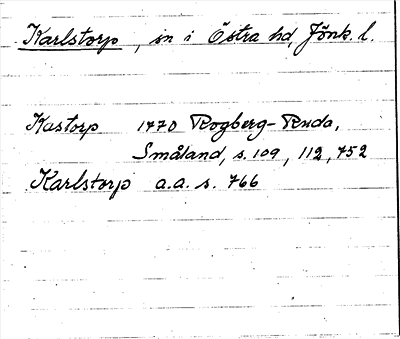 Karlstorp, sn i Östra hd, Jönk. l.
Kastorp 1770 Rogberg-Ruda,
Småland, s. 109, 112, 752
Karlstorp a.a. s. 766